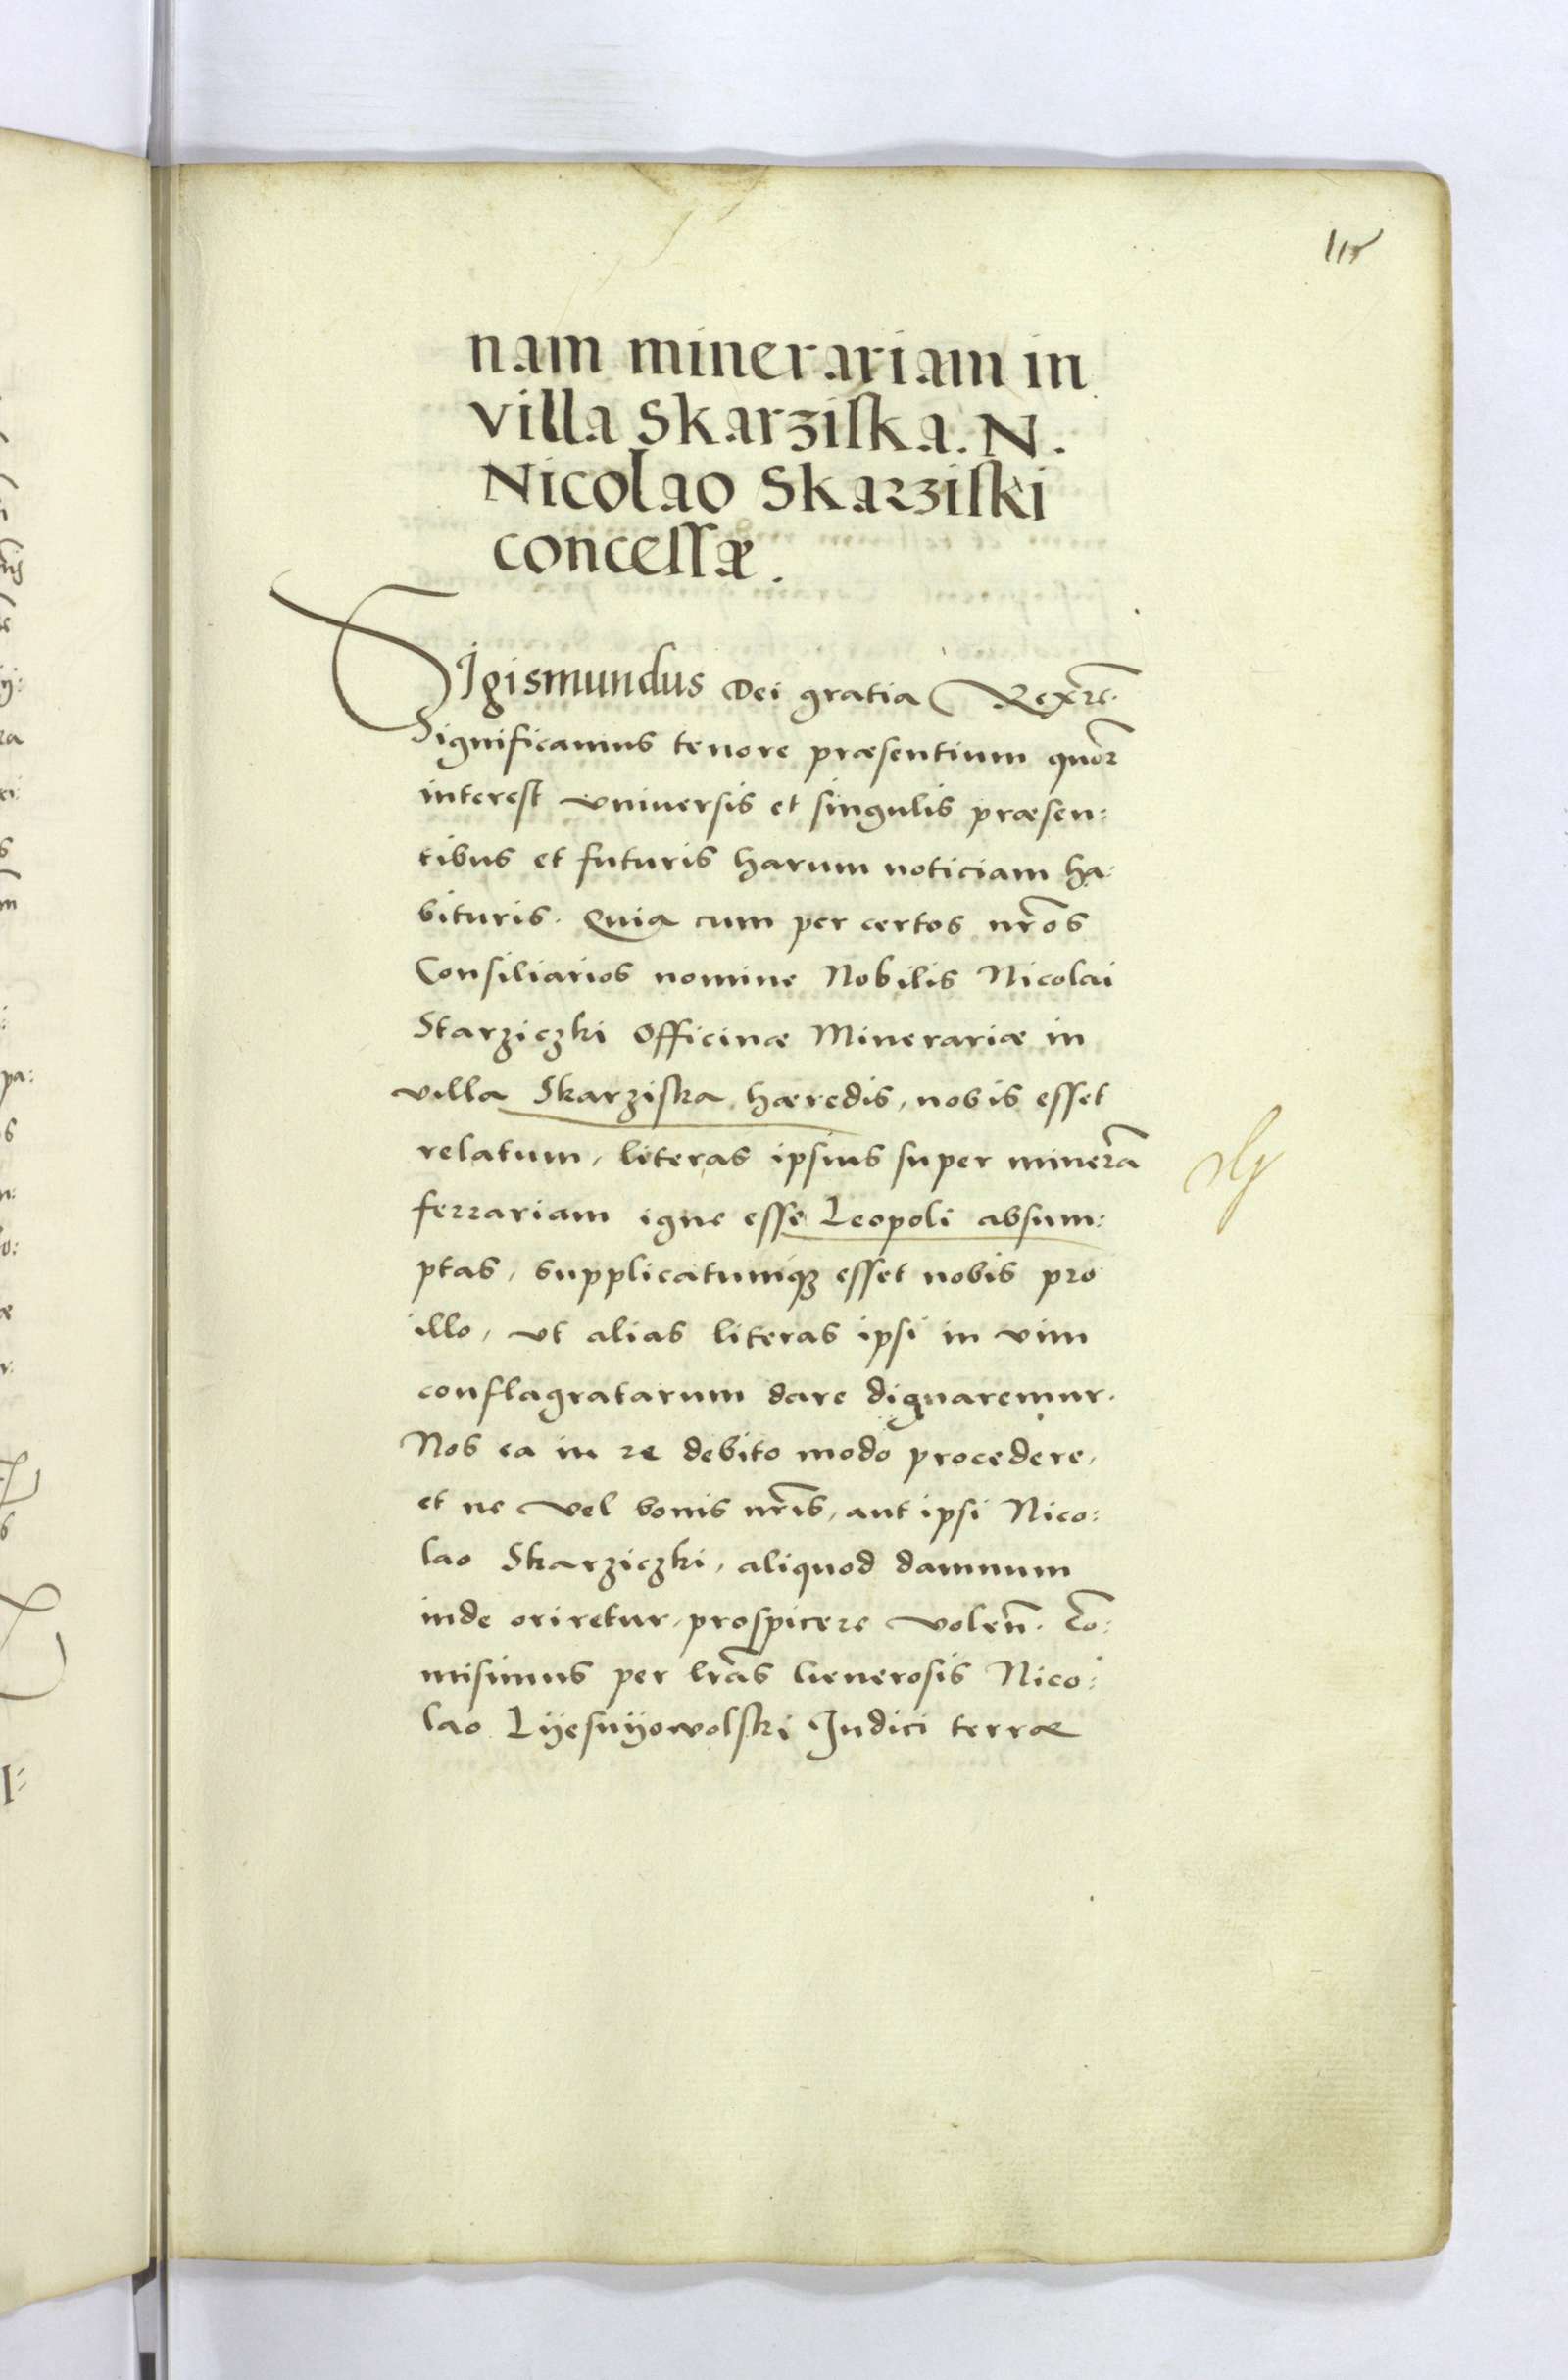 115
nam minerariam in
villa Skarziska. N.
Nicolao Skarziski
concessæ.
Sigismundus Dei gratia Rex etc.
Significamus tenore præsentium quor
interest vniuersis et singulis præsen:
tibus et futuris harum noticiam ha:
bituris. Quia cum per certos nros
Consiliarios nomine Nobilis Nicolai
Starziczki Officinæ Minerariæ in
villa Skarziska hæredis, nobis esset
relatum, literas ipsius super minerã
ferrariam igne esse Leopoli absum:
ptas, supplicatumqꝫ esset nobis pro
illo, vt alias literas ipsi in vim
conflagratarum dare dignaremur.
Nos ea in re debito modo procedere,
et ne vel bonis nris, aut ipsi Nico:
lao Skarziczki, aliquod damnum
inde oriretur, prospicere volen. Cõ:
misimus per lras Generosis Nico:
lao Lyesnyowolski Iudici terræ